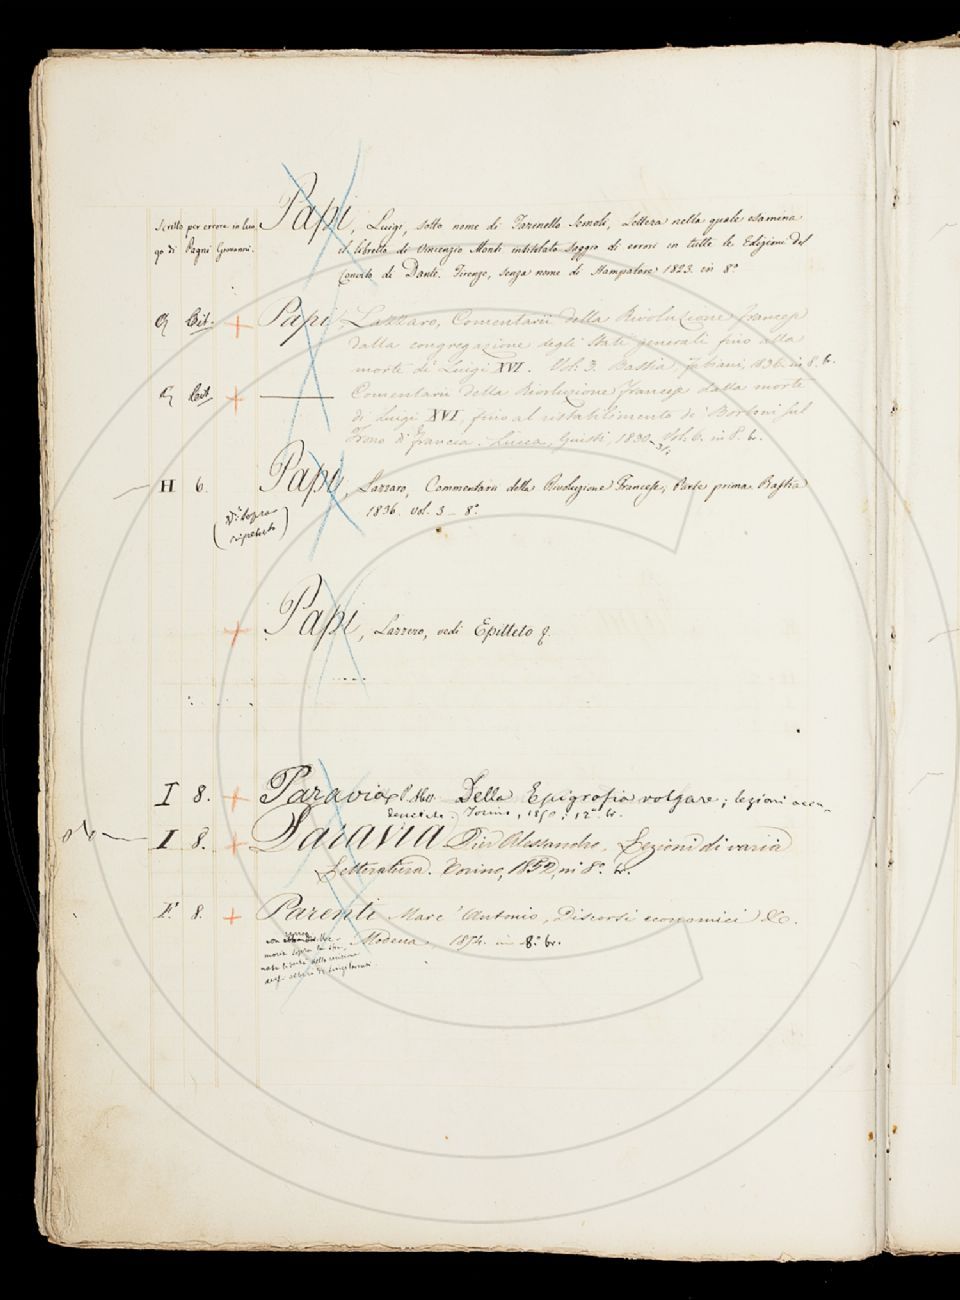 Scritto per errore in luo
go di Pagni Giovanni.
Papi, Luigi, sotto nome di Farinello Semoli, Lettera nella quale esamina
il libretto di Vincenzio Monti intitolato Saggio di errori in tutte le Edizioni del
Convito di Dante. Firenze, senza nome di Stampatore 1823. in 8°
Cit. + Papi, Lazzaro, Comentarii della Rivoluzione francese
dalla congregazione degli Stati generali fino alla
morte di Luigi XVI. Vol. 3. Bastia, Fabiani, 1836. in 8. br.
Cit + —— Comentarii della Rivoluzione Francese dalla morte
di Luigi XVI, fino al ristabilimento de' Borboni sul
Trono di Francia. Lucca, Giusti, 1830-31, Vol. 6. in 8. br.
H 6. Papi, Lazzaro, Commentarii della Rivoluzione Francese, Parte prima Bastia
1836. vol. 3 - 8°
(Di sopra
ripetuto)
+ Papi, Lazzero, vedi Epitteto
I 8. + Paravia, P. Aless. Della Epigrafia volgare; lezioni acca-
demiche. Torino, 1850; 12° br.
I 8. + Paravia Pier Alessandro, Lezioni di varia
Letteratura. Torino, 1852, in 8°. br.
F. 8. + Parenti Marc'Antonio, Discorsi economici &c.
Modena, 1874. in 8°. br.